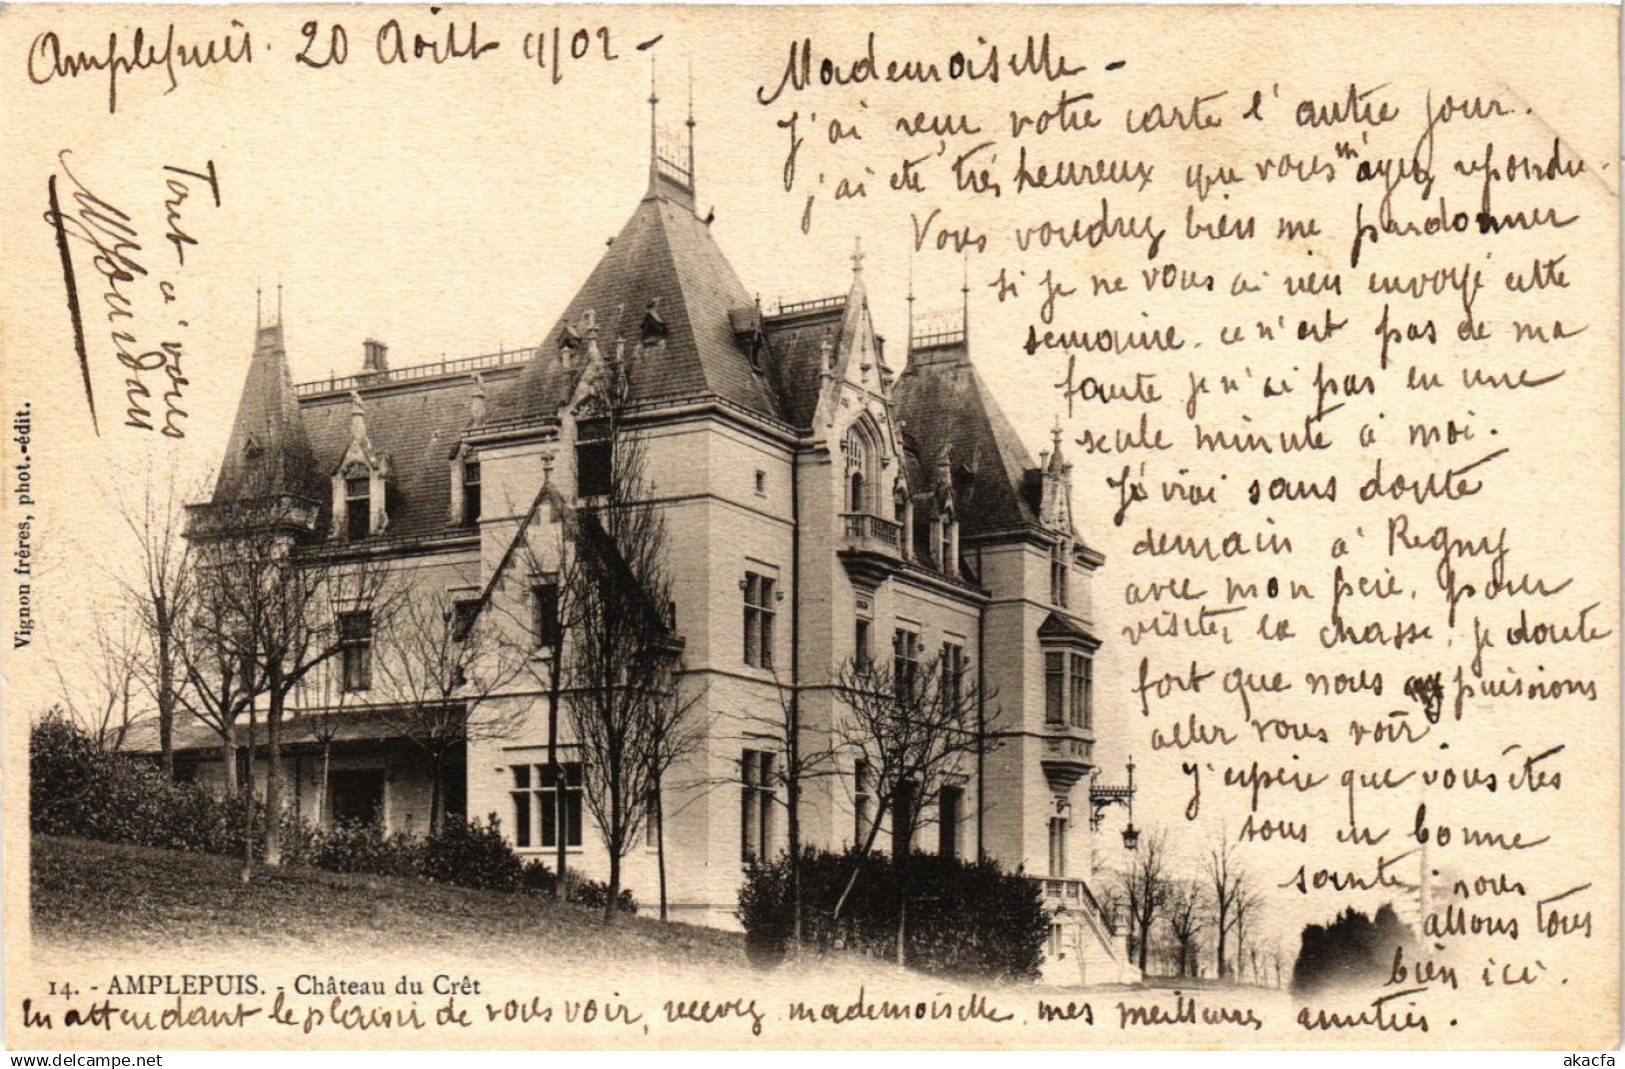 Amplepuis. 20 Août 1902 -
Mademoiselle -
J'ai reçu votre carte l'autre jour.
j'ai été très heureux que vous m'ayez repondu.
Vous voudrez bien me pardonner
si je ne vous ai rien envoyé cette
semaine. ce n'est pas de ma
faute je n'ai pas eu une
seule minute à moi.
J'irai sans doute
demain à Regny
avec mon père, pour
visiter la chasse, je doute
fort que nous puissions
aller vous voir.
J'espère que vous êtes
tous en bonne
santé. nous
allons tous
bien ici.
En attendant le plaisir de vous voir, recevez mademoiselle, mes meilleures amitiés.
Tout à vous
14. - AMPLEPUIS. - Château du Crêt
Vignon frères, phot.-édit.
akacfa